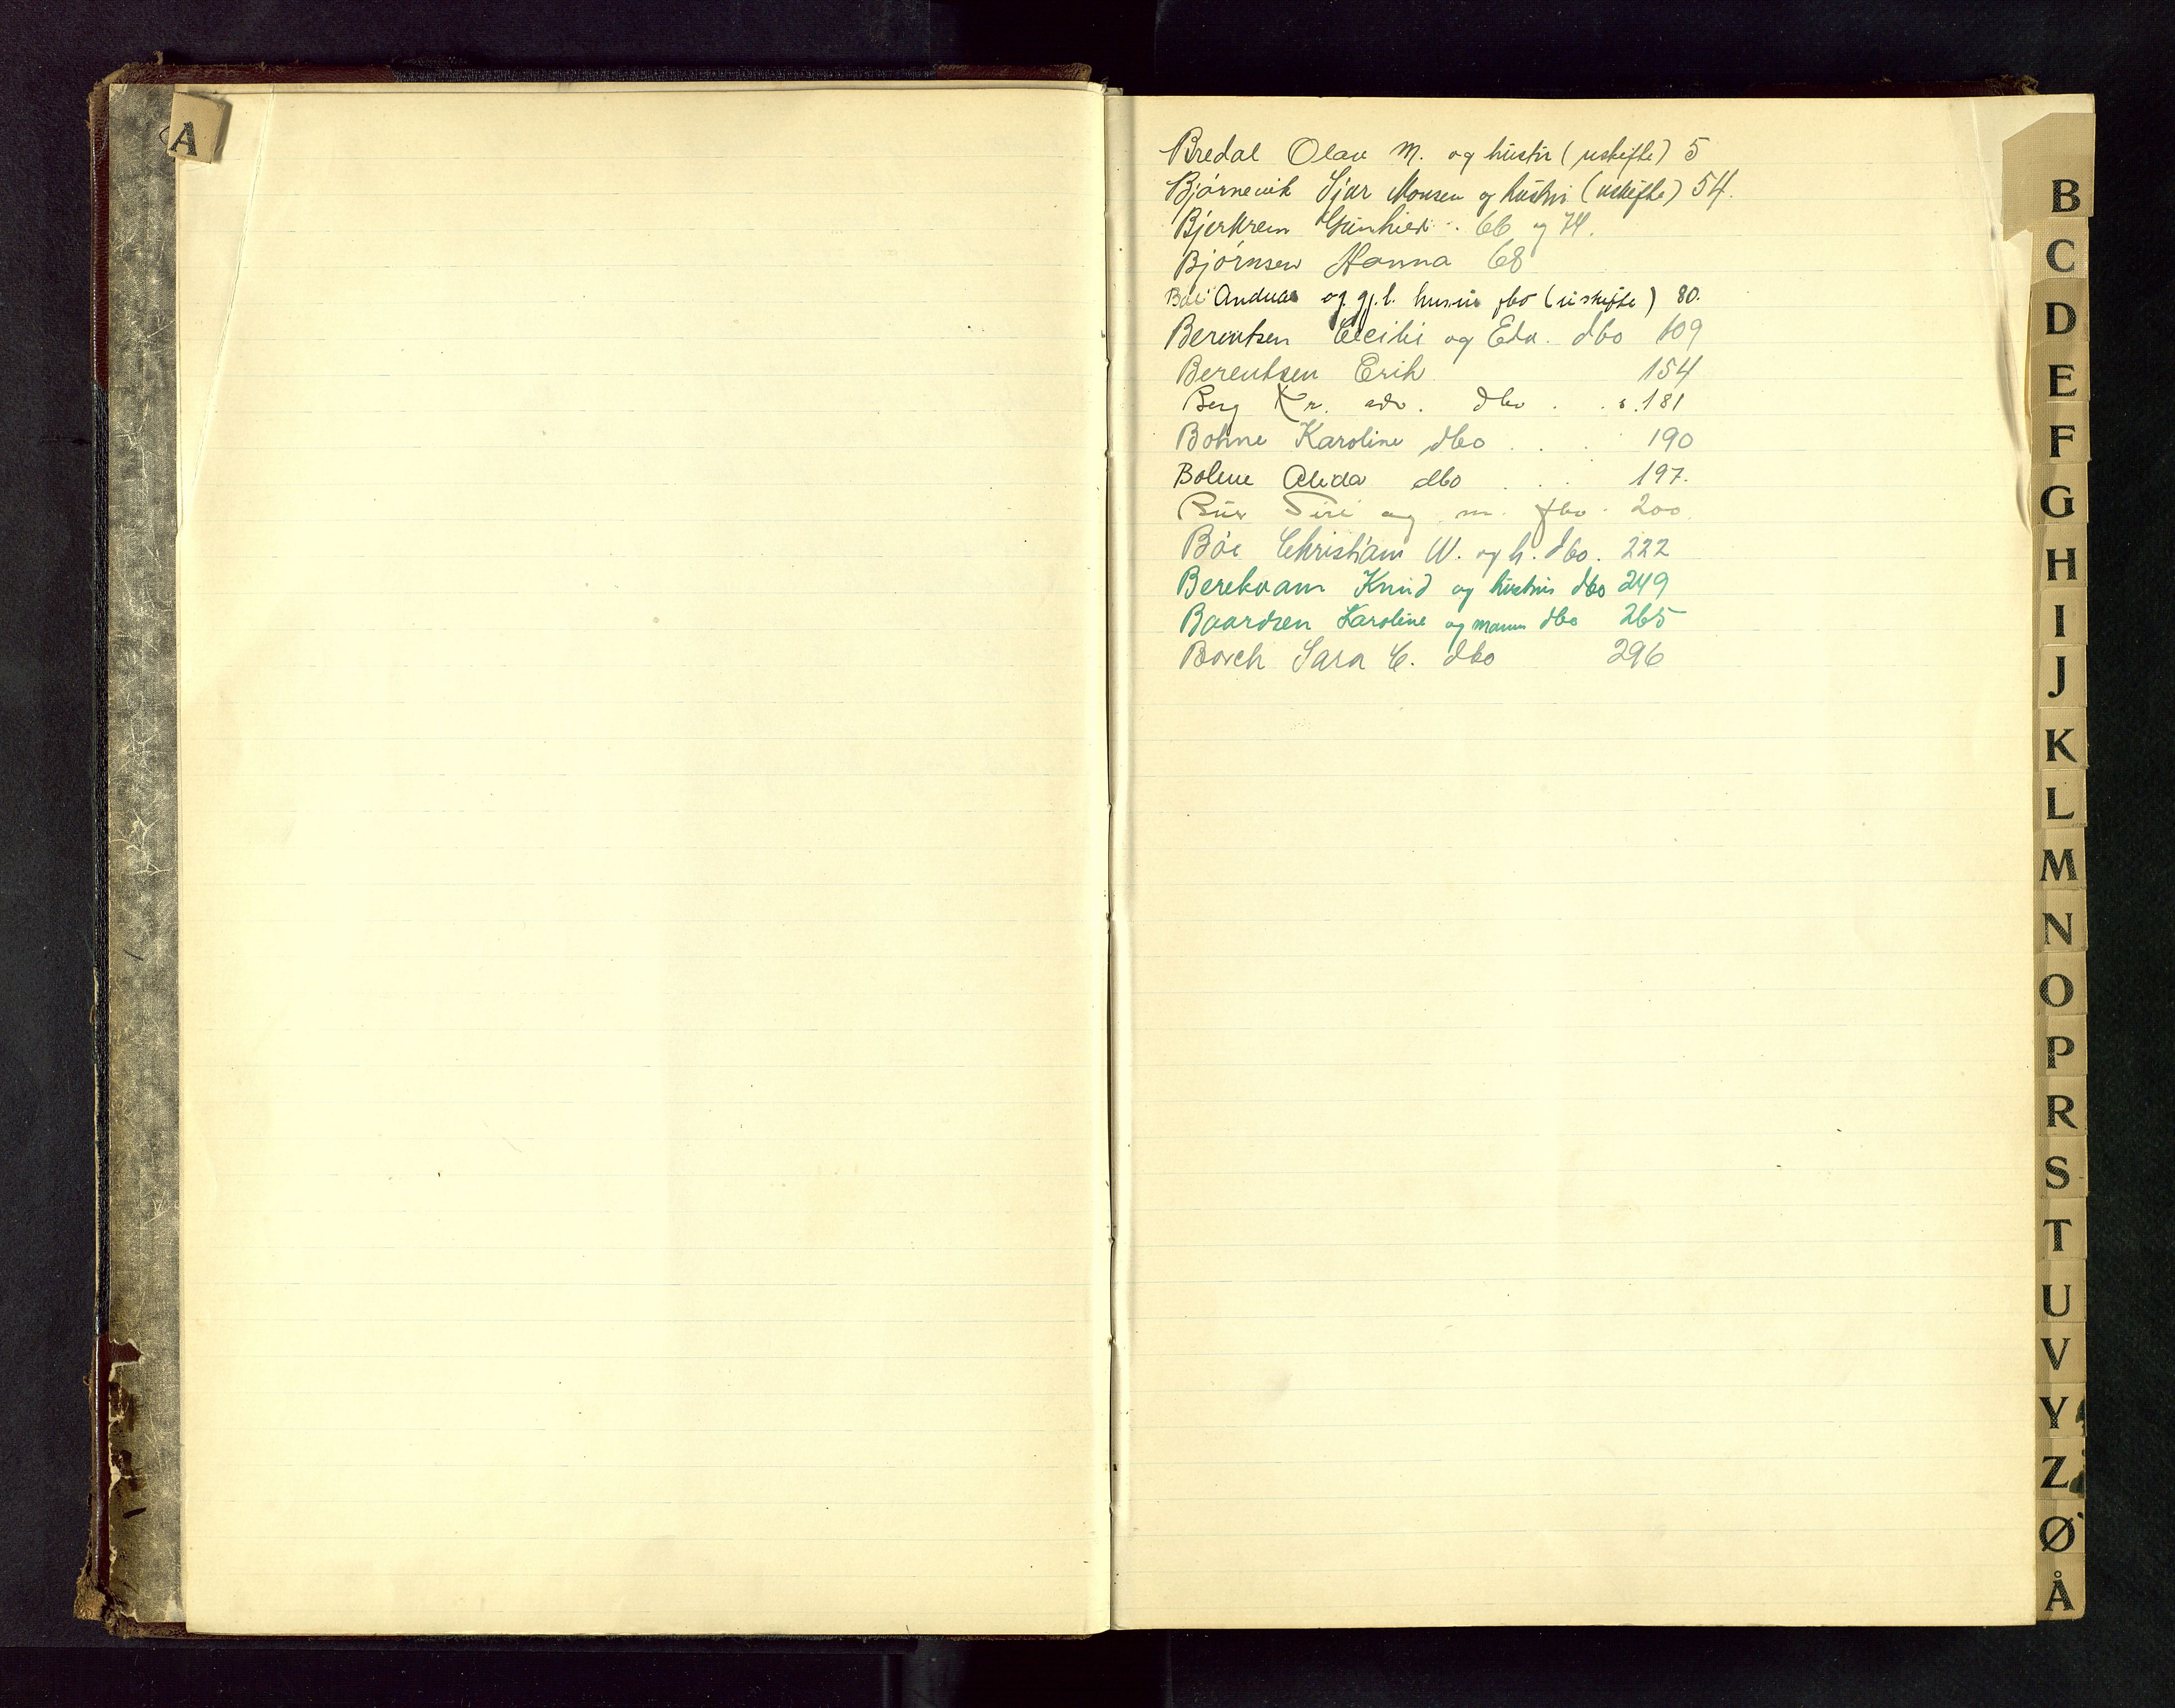 A
Bredal Olav M. og hustru (uskifte) 5
Bjørnevik Sjur Monsen og hustru (uskifte) 54.
Bjerkrem Gunhild. 66 og 74.
Bjørnsen Hanna 68
Andreas og gj.l. hustru fbo (uskifte) 80.
Berentsen Cecilie og Edv. dbo 109
Berentsen Erik 154
Berg Kr. adv. dbo . . s. 181
Bohne Karoline dbo . . . 190
Bohne Alida dbo . . . 197.
Siri og m. fbo. 200.
Bøe Christian W. og h. dbo. 222
Berekvam Knud og hustru dbo 249
Baardsen Karoline og mann dbo 265
Borch Sara C. dbo 296
B
C
D
E
F
G
H
I
J
K
L
M
N
O
P
R
S
T
U
V
Y
Z
Ø
Å